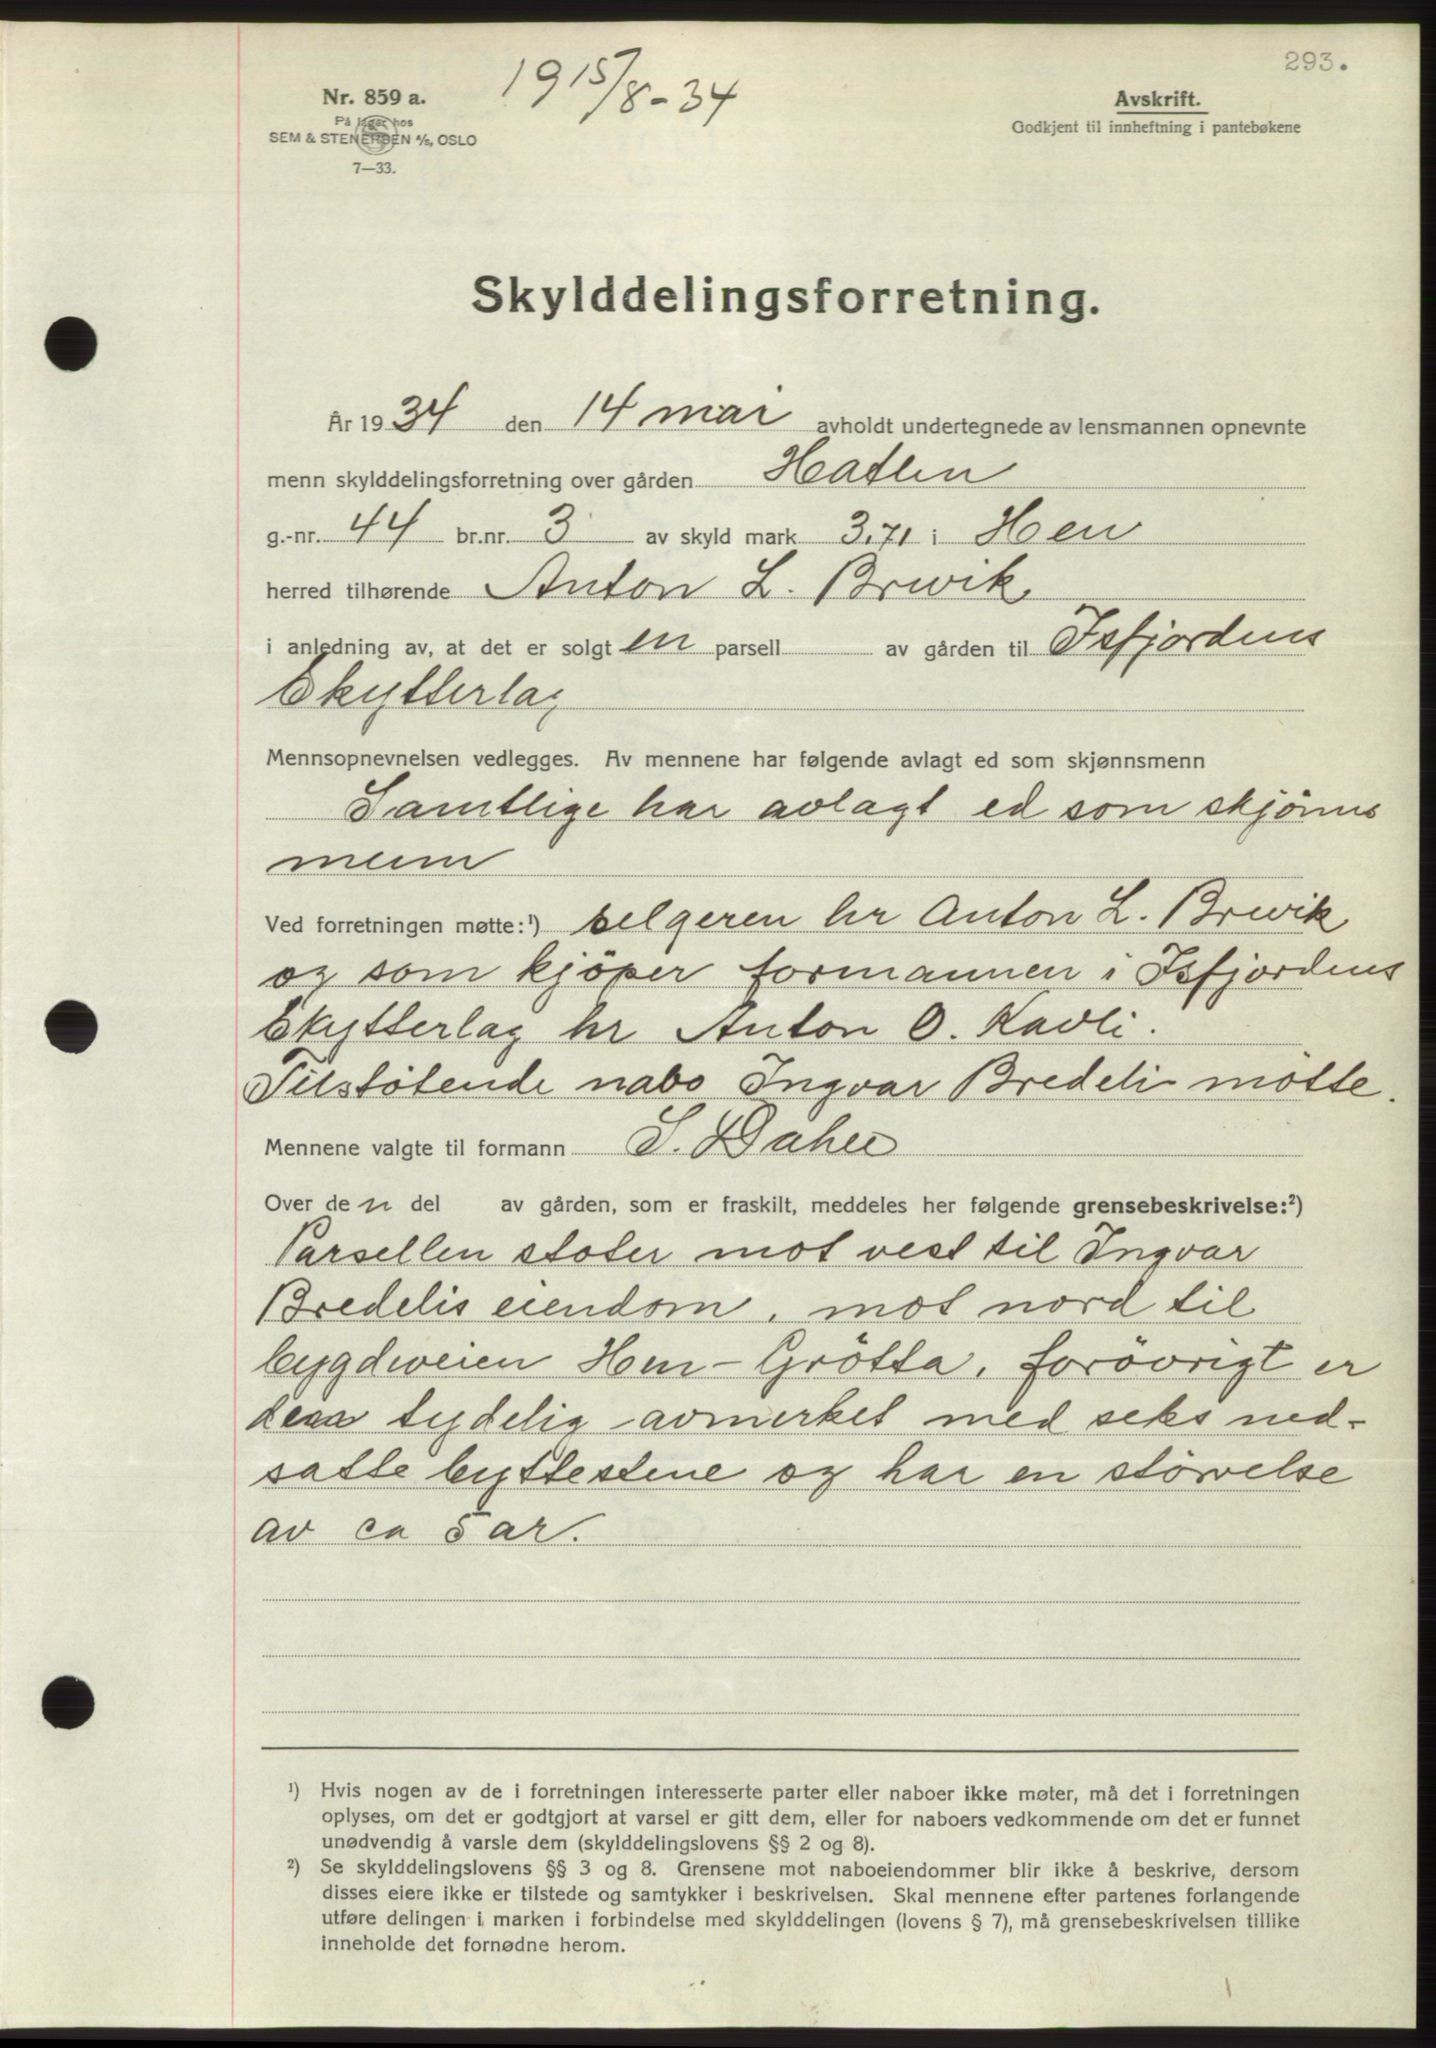 293.
1915/8-34
Nr. 859 a.
På lager hos
SEM & STENERSEN A/S, OSLO
7—33.
Avskrift.
Godkjent til innheftning i pantebøkene
Skylddelingsforretning.
År 1934 den 14 mai avholdt undertegnede av lensmannen opnevnte
menn skylddelingsforretning over gården Hatlen
g.-nr. 44 br.nr. 3 av skyld mark 3,71 i Hen
herred tilhørende Anton L. Brevik
i anledning av, at det er solgt en parsell av gården til Isfjordens
Skytterlag
Mennsopnevnelsen vedlegges. Av mennene har følgende avlagt ed som skjønnsmenn
Samtlige har avlagt ed som skjönns
menn
Ved forretningen møtte:¹) selgeren hr Anton L. Brevik
og som kjöper formannen i Isfjordens
Skytterlag hr Anton O. Kavli.
Tilstötende nabo Ingvar Bredeli mötte.
Mennene valgte til formann S. Dahle
Over den del av gården, som er fraskilt, meddeles her følgende grensebeskrivelse:²)
Parsellen stöter mot vest til Ingvar
Bredelis eiendom, mot nord til
bygdeveien Hen-Grötta, forövrigt er
tydelig avmerket med seks ned-
satte byttestene og har en störrelse
av ca 5 ar.
¹) Hvis nogen av de i forretningen interesserte parter eller naboer ikke møter, må det i forretningen
oplyses, om det er godtgjort at varsel er gitt dem, eller for naboers vedkommende om det er funnet
unødvendig å varsle dem (skylddelingslovens §§ 2 og 8).
²) Se skylddelingslovens §§ 3 og 8. Grensene mot naboeiendommer blir ikke å beskrive, dersom
disses eiere ikke er tilstede og samtykker i beskrivelsen. Skal mennene efter partenes forlangende
utføre delingen i marken i forbindelse med skylddelingen (lovens § 7), må grensebeskrivelsen tillike
inneholde det fornødne herom.